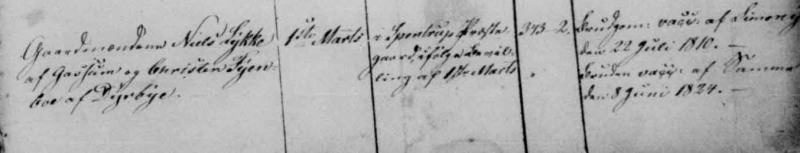 Gaardmændene Niels Lykke
af Gassum og Christen Steen-
boe af Dyrbye.
1ste Marts
i Spentrup Præste
gaard ifølge Bevil-
ling af 1ste Marts
343-2.
Brudgom: vacc: af Simony
den 22 Juli 1810. —
Bruden vacc: af Samme
den 8 Juni 1824. —